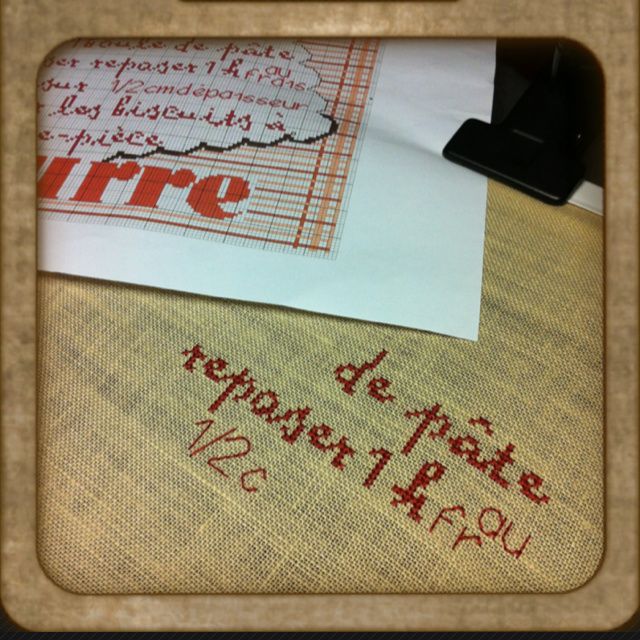 de pâte
reposer 1 h au frais
sur 1/2 cm d'épaisseur
les biscuits à
e-pièce
urre
de pâte
reposer 1 h au
fr
1/2 c